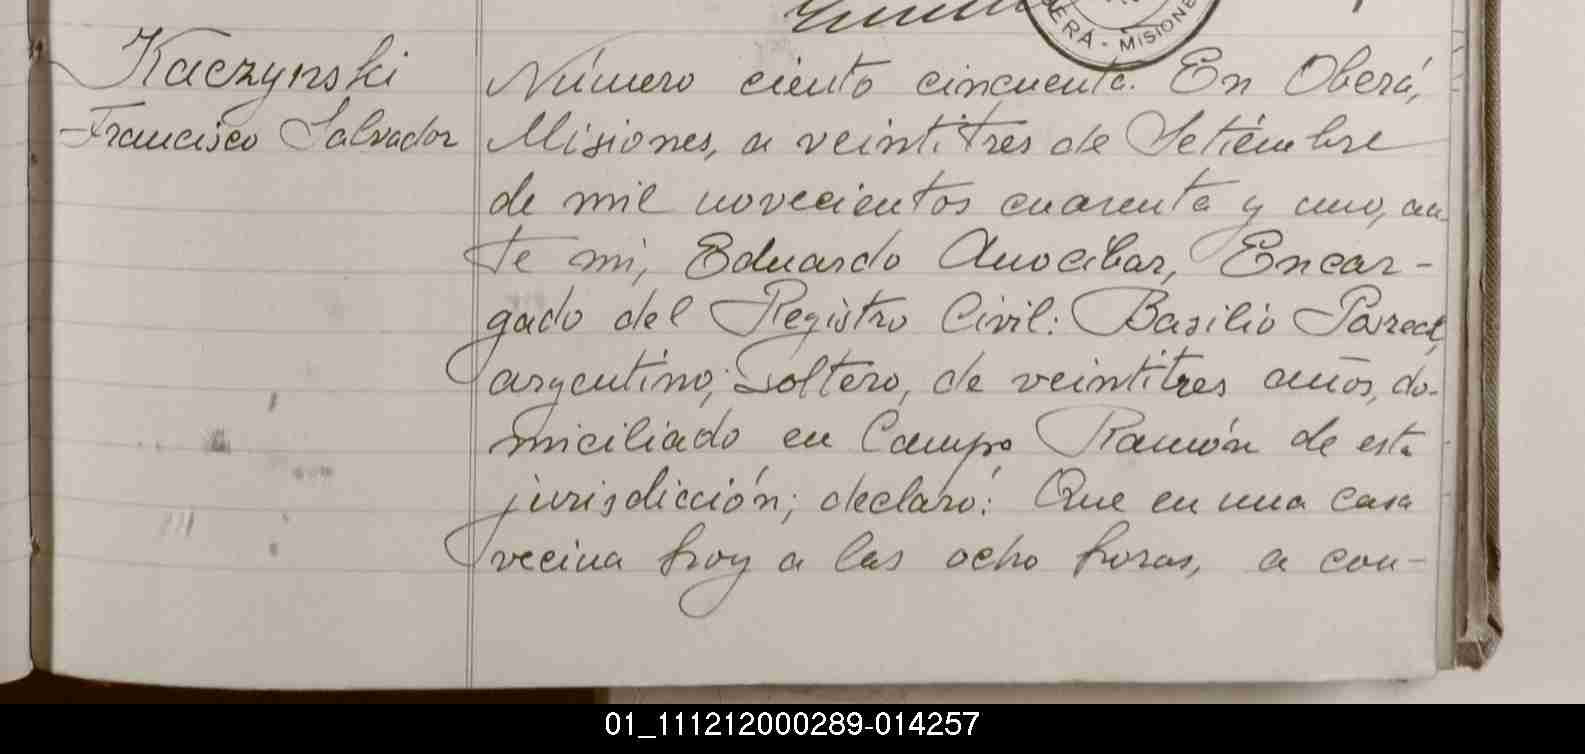 OBERÁ - MISIONE
Kaczynski
Francisco Salvador
Número ciento cincuenta. En Oberá,
Misiones, a veintitres de Setiembre
de mil novecientos cuarenta y uno, an
te mi, Eduardo Anocibar, Encar-
gado del Registro Civil: Basilio
argentino, soltero, de veintitres años, do-
miciliado en Campo Ramón de esta
jurisdicción; declaró: Que en una casa
vecina hoy a las ocho horas, a con-
01_111212000289-014257